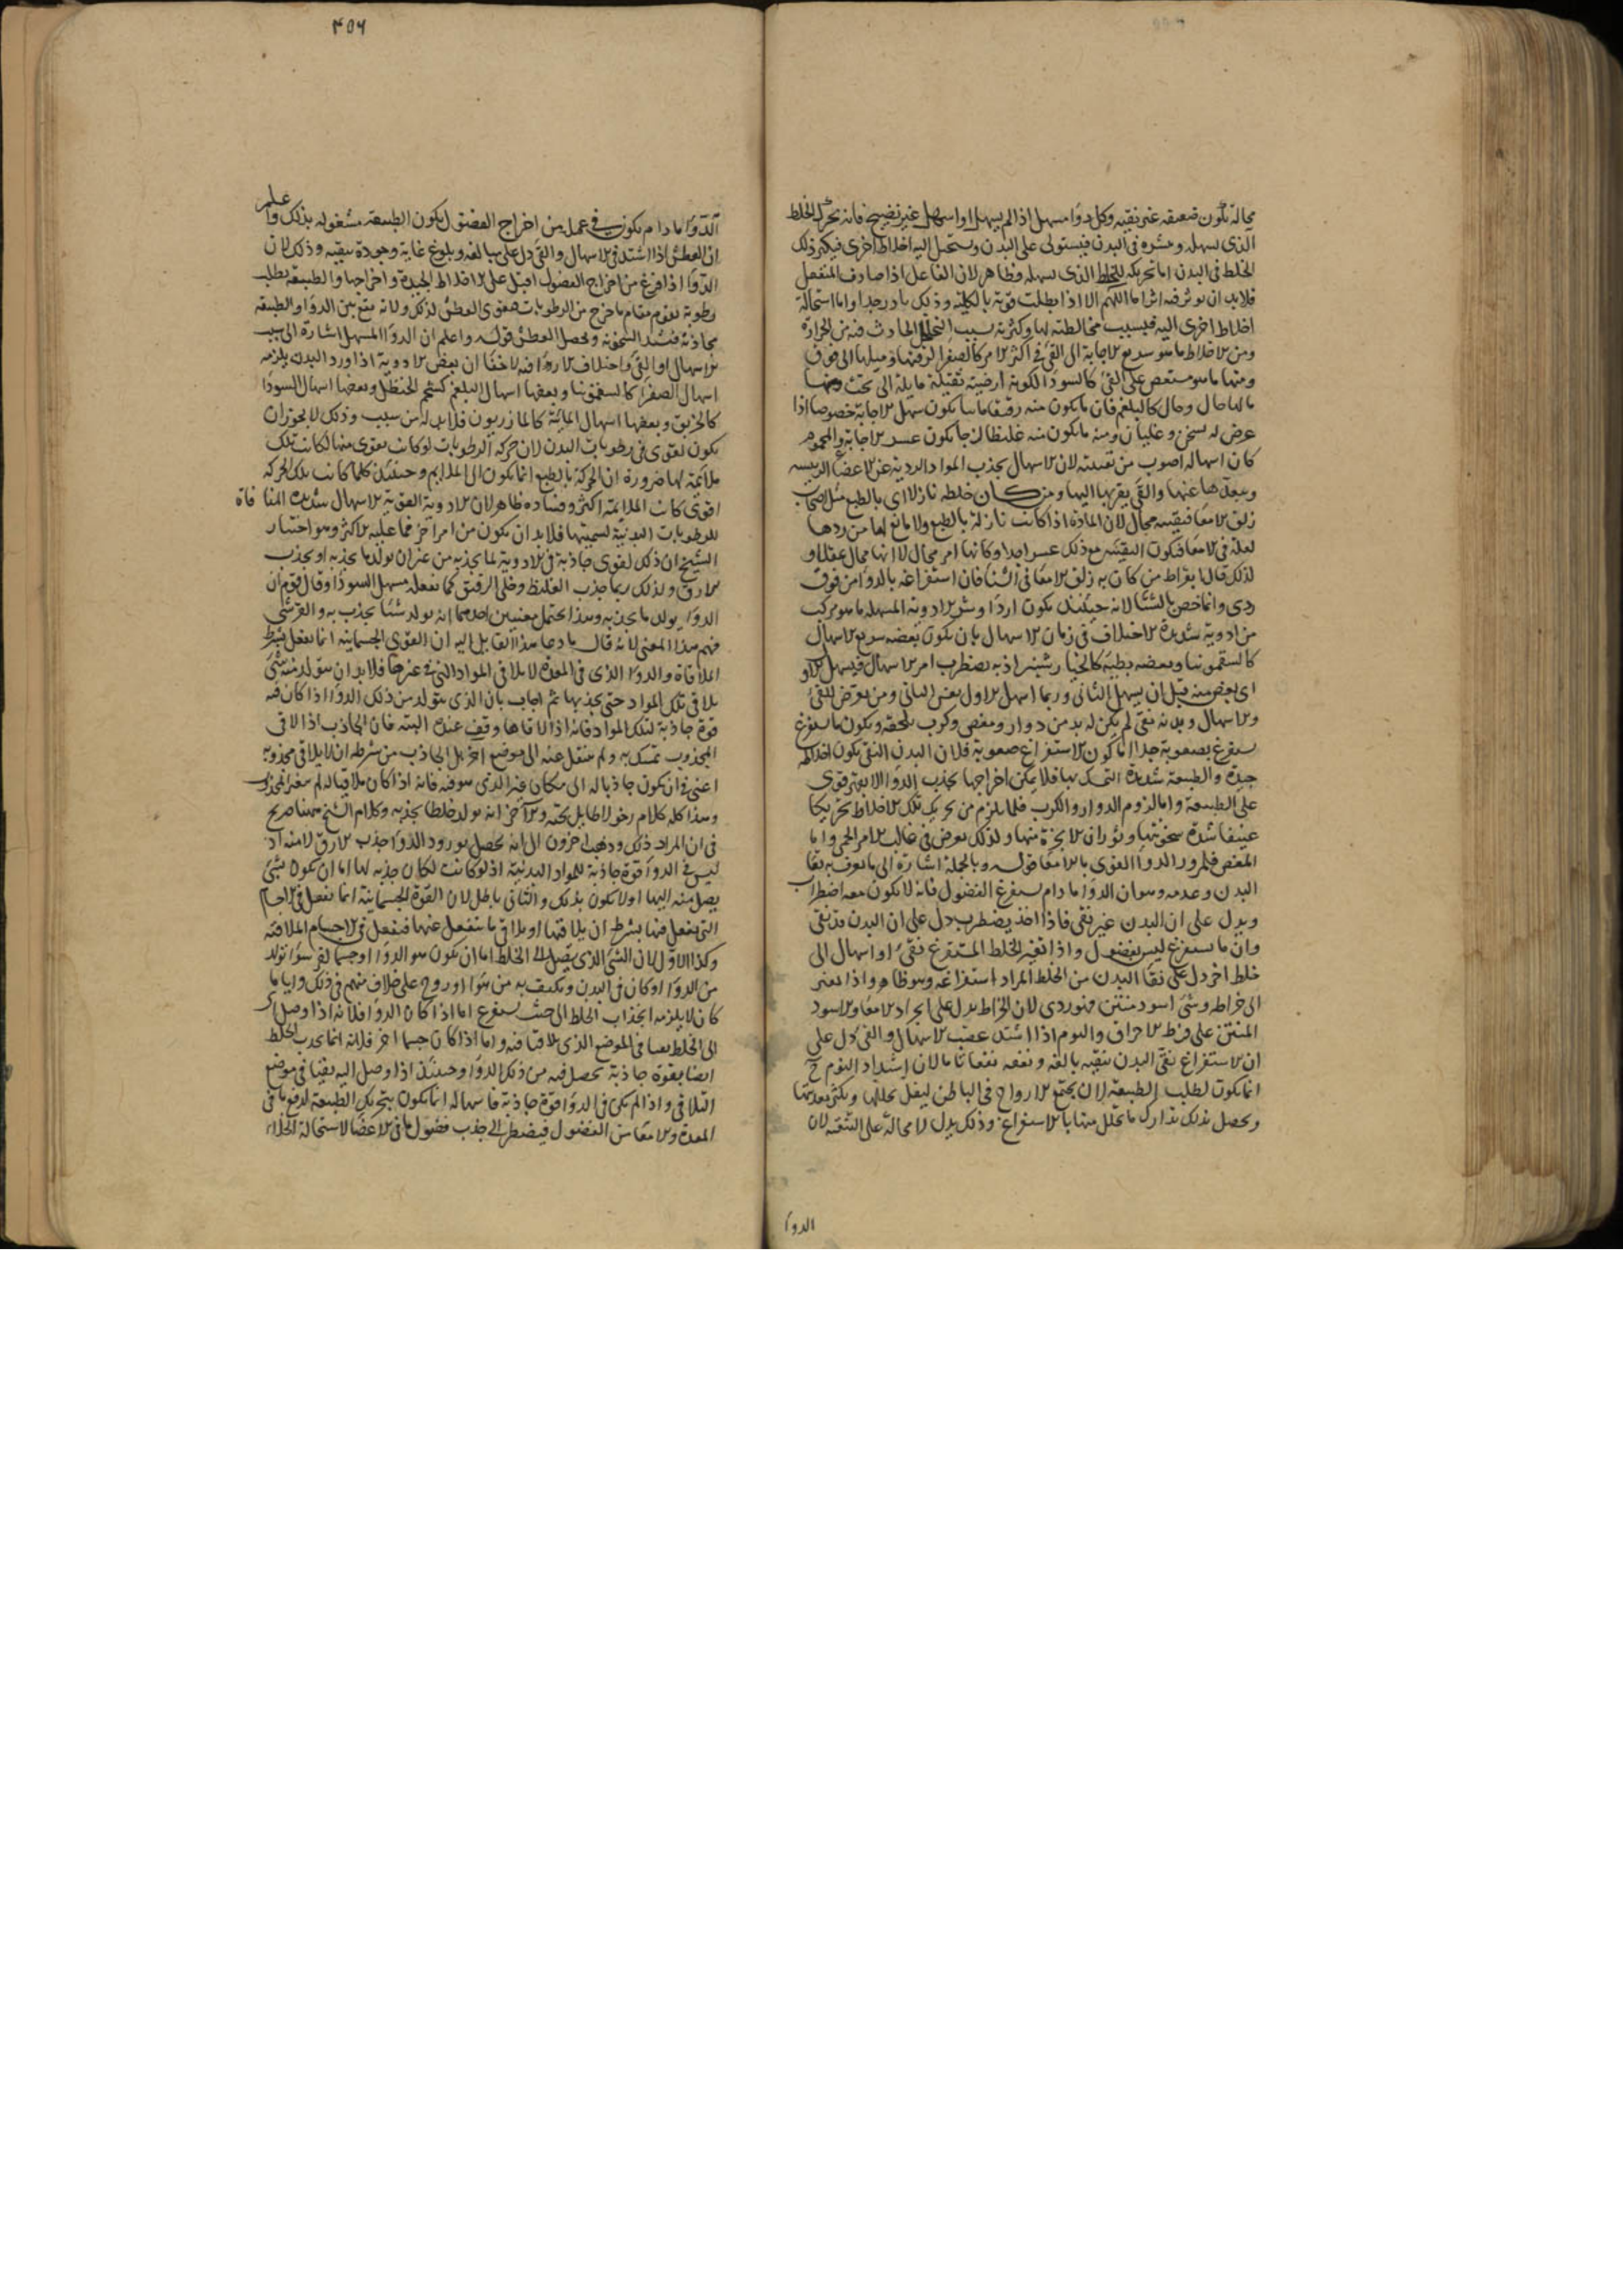 محالة تكون ضعيفة غير نقية وكل دواء مسهل اذا لم يسهل او اسهل غير نضيج فانه يحرك الخلط
الذى يسهله ويثيره فى البدن فيستولى على البدن ويستحيل اليه اخلاط اخرى فيكثر ذلك
الخلط فى البدن اما تحريكه للخلط الذى يسهله فظاهر لان الفاعل اذا صادف المنفعل
فلا بد ان يؤثر فيه اثرا ما اللهم الا اذا بطلت قوته بالكلية وذلك نادر جدا واما استحالة
اخلاط اخرى اليه فبسبب مخالطته لها وكثرته بسبب التخلخل الحادث فيه من الحرارة
ومن الاخلاط ما هو سريع الاجابة الى القئ فى اكثر الامر كالصفرا لرقتها وميلها الى فوق
ومنها ما هو مستعص على القئ كالسودا لكونه ارضية ثقيلة مايلة الى تحت ومنها
ما لها حال وحال كالبلغم فان ما يكون منه رقيقا مائيا يكون سهل الاجابة خصوصا اذا
عرض له تسخن وغليان ومنه ما يكون منه غليظا لزجا يكون عسر الاجابة والمحموم
كان اسهاله اصوب من تقيئته لان الاسهال يجذب المواد الردية عن الاعضا الرئيسه
ويبعدها عنها والقى يقربها اليها ومن كان خلطه نازلا اى بالطبع مثل اصحاب
زلق الامعا فيقييه محال لان المادة اذا كانت نازلة بالطبع ولا مانع لها من ردها
لعلة فى الامعا فيكون التقيئه مع ذلك عسر جدا وكانها امر محال لا انها محال عقلا و
لذلك قال ابقراط من كان به زلق الامعا فى الشتا فان استفراغه بالدوا من فوق
ردى وانما خص بالشتا لانه حينئذ يكون اردا وشر الادوية المسهله ما هو مركب
من ادوية شديدة الاختلاف فى زمان الاسهال بان يكون بعضه سريع الاسهال
كالسقمونيا وبعضه بطيئة كالخيار شنبر اذ به يضطرب امر الاسهال فيسهل الاو
اى بعض منه قبل ان يسهل الثانى وربما اسهل الاول بعض الثانى ومن تعرض للقئ
والاسهال وبدنه نقى لم يكن له بد من دوار ومغص وكرب يلحقه ويكون ما يستفرغ
يستفرغ بصعوبة جدا اما كون الاستفراغ صعوبة فلان البدن النقى يكون اخلاطه
جيدة والطبيعة شديدة التمسك بها فلا يمكن اخراجها بجذب الدوا الا بقهر قوى
على الطبيعة واما لزوم الدوار والكرب فلما يلزم من تحريك تلك الاخلاط تحريكا
عنيفا شدة سخونتها وثوران الابخرة منها ولذلك يعرض فى غالب الامر الحمى واما
المغص فلمرور الدوا القوى بالامعا قوله وبالجملة اشارة الى ما يعرف به نقا
البدن وعدمه وهو ان الدوا ما دام يستفرغ الفضول فانه لا يكون معه اضطراب
ويدل على ان البدن غير نقى فاذا اخذ يضطرب دل على ان البدن قد نقى
وان ما يستفرغ ليس بفضول واذا تغير الخلط المستفرغ بقئ او اسهال الى
خلط اخر دل على نقا البدن من الخلط المراد استفراغه وهو ظاهر واذا تغير
الى خراطه وشئ اسود منتن فهو ردى لان الخراط يدل على انجراد الامعا والاسود
المنتن على فرط الاحراق والنوم اذا اشتد عقيب الاسهال والقى دل على
ان الاستفراغ نقى البدن تنقيه بالغه ونفعه نفعا تاما لان اشتداد النوم ح
انما يكون لطلب الطبيعة لان يجتمع الارواح فى الباطن ليقل تحللها ويكثر
ويحصل بذلك تدارك ما تحلل منها بالاستفراغ وذلك يدل لا محالة على التنقيه لان
الدوا
٤٥٦
الدوا ما دام يكون فى عمل من اخراج الفضول يكون الطبيعة مشغوله بذلك واعلم
ان العطش اذا اشتد فى الاسهال والقى دل على مبالغة وبلوغ غاية وجودة تنقيه وذلك لان
الدوا اذا فرغ من اخراج الفضول اقبل على الاخلاط الجيدة واخراجها والطبيعة تطلب
رطوبة تقوم مقام ما خرج من الرطوبات فيقوى العطش لذلك ولانه يقع بين الدوا والطبيعه
مجاذبة فتشتد السخونة ويحصل العطش قوله واعلم ان الدوا المسهل اشارة الى سبب
الاسهال او القى واختلاف الاراء فيه لا خفا ان بعض الادوية اذا ورد البدن يلزمه
اسهال الصفرا كالسقمونيا وبعضها اسهال البلغم كشحم الحنظل وبعضها اسهال السودا
كالخربق وبعضها اسهال المائية كالمازريون فلا بد له من سبب وذلك لا يجوز ان
يكون لقوى فى رطوبات البدن لان حركة الرطوبات لو كانت لقوى منها لكانت تلك
ملائمة لها ضرورة ان الحركة بالطبع انما يكون الى الملايم وحينئذ كلما كانت تلك الحركة
اقوى كانت الملائمة اكثر وفساده ظاهر لان الادوية القوية الاسهال شديدة المنافاة
للرطوبات البدنية لسميتها فلا بد ان يكون من امر اخر فما عليه الاكثر وهو اختيار
الشيخ ان ذلك لقوى جاذبة فى الادوية لما يجذبه من غير ان يولد ما يجذبه او يجذب
الارق ولذلك ربما جذب الغليظ وخلى الرقيق كما يفعله مسهل السودا وقال قوم ان
الدوا يولد ما يجذبه وهذا يحتمل معنيين احدهما انه يولد شيئا يجذب به والقرشى
فهم هذا المعنى لانه قال ما دعا هذا القايل اليه ان القوى الجسمانية انما تفعل بشرط
الملاقاة والدوا الذى فى المعدة لا يلاقى المواد التى فى غيرها فلا بد ان يتولد منه شئ
يلاقى تلك المواد حتى يجذبها ثم اجاب بان الذى يتولد من ذلك الدوا اذا كان فيه
قوة جاذبة لتلك المواد فانه اذا لاقاها وقف عندها البته فان الجاذب اذا لاقى
المجذوب تمسك به ولم ينتقل عنه الى موضع اخر بل الجاذب من شرطه ان لا يلاقى مجذوبه
اعنى فى ان يكون جاذبا له الى مكان غير الذى هو فيه فانه اذا كان ملاقيا له لم
وهذا كله كلام رخو لا طايل تحته والاخر انه يولد خلطا يجذبه وكلام الشيخ ههنا صريح
فى ان المراد ذلك وذهب اخرون الى انه يحصل بورود الدوا جذب الارق لامنه اذ
ليس فى الدوا قوة جاذبة للمواد البدنية اذ لو كانت لكان جذبه لها اما ان يكون بشئ
يصل منه اليها او لا يكون بذلك والثانى باطل لان القوة الجسمانية انما تفعل فى الاجسام
التى تفعل فيها بشرط ان يلاقيها او يلاقى ما ينفعل عنها فيفعل فى الاجسام الملاقية
وكذا الاول لان الشئ الذى يصل الى الخلط اما ان يكون هو الدوا او جسما اخر سوا تولد
من الدوا او كان فى البدن وتكيف به من هوا او روح على خلاف منهم فى ذلك وايا ما
كان لا يلزمه انجذاب الخلط الى حيث يستفرغ اما اذا كان الدوا فلانه اذا وصل
الى الخلط بقيا فى الموضع الذى تلاقيا فيه واما اذا كان جسما اخر فلانه انما يجذب الخلط
ايضا بقوة جاذبة تحصل فيه من ذلك الدوا وحينئذ اذا وصل اليه بقيا فى موضع
التلاقى واذا لم يكن فى الدوا قوة جاذبة فاسهاله انما يكون بتحريك الطبيعة لدفع ما فى
المعدة والامعا من الفضول فيضطر الى جذب فضول ما فى الاعضا لاستحالة الخلاء